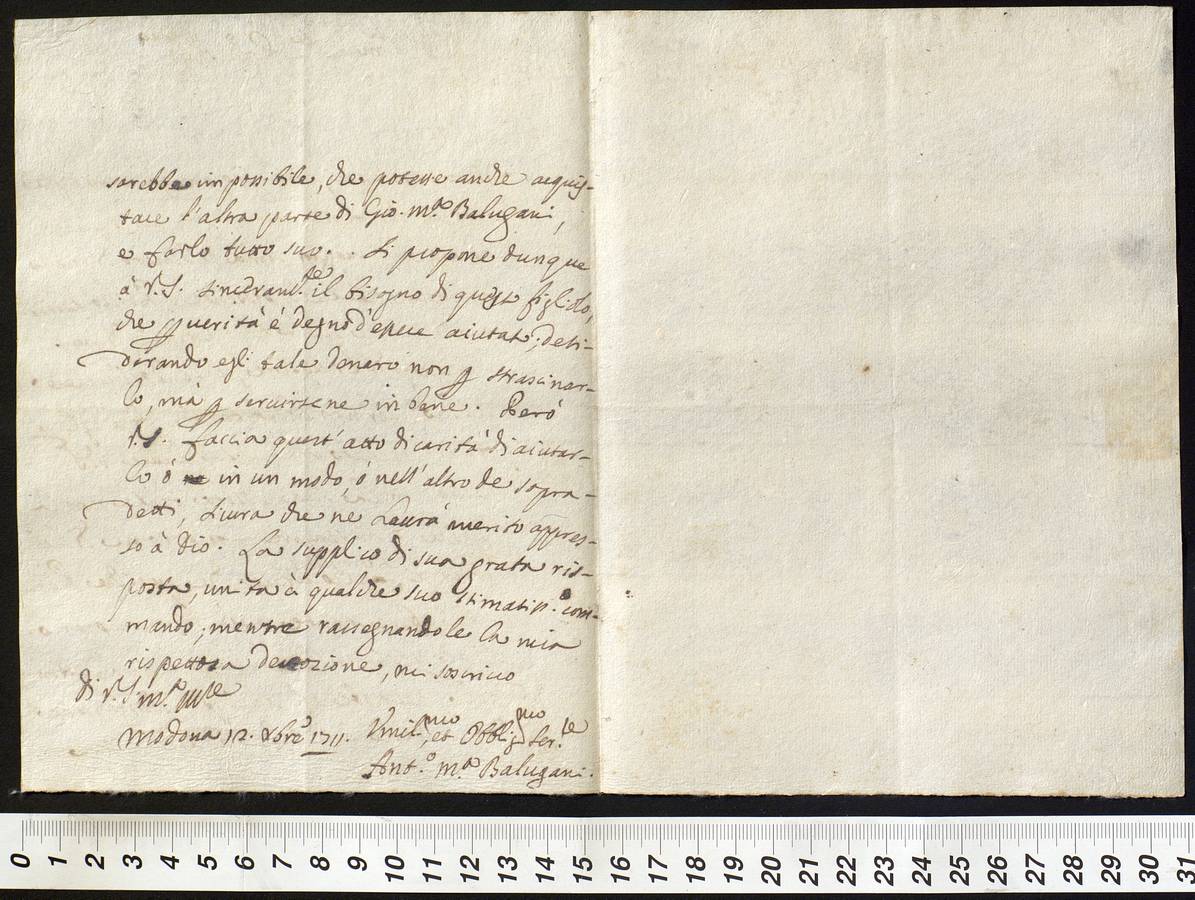 sarebbe impossibile, che potesse anche acquis-
tare l'altra parte di Gio. M.ª Balugani,
e farlo tutto suo. Si propone dunque
à V.S. sinceram.te il bisogno di questo figliolo,
che p verità é degno d'essere aiutato, desi-
derando egli tale denero non p strascinar-
lo, mà p servirsene in bene. Peró
V.S. faccia quest'atto di carità di aiutar-
lo ó in un modo, ó nell'altro de sopra-
detti, sicura che ne haurá merito appres-
so à Dio. La supplico di sua grata ris-
posta, unita à qualche suo stimatiss.o com-
mando, mentre rassegnandole la mia
rispettosa devozione, mi soscrivo
di V.S. m.ª Ill.e
Modona 12. Xbre 1711. Umil.mo, et Obblig.mo Ser.le
Ant.o M.ª Balugani.
0 1 2 3 4 5 6 7 8 9 10 11 12 13 14 15 16 17 18 19 20 21 22 23 24 25 26 27 28 29 30 31